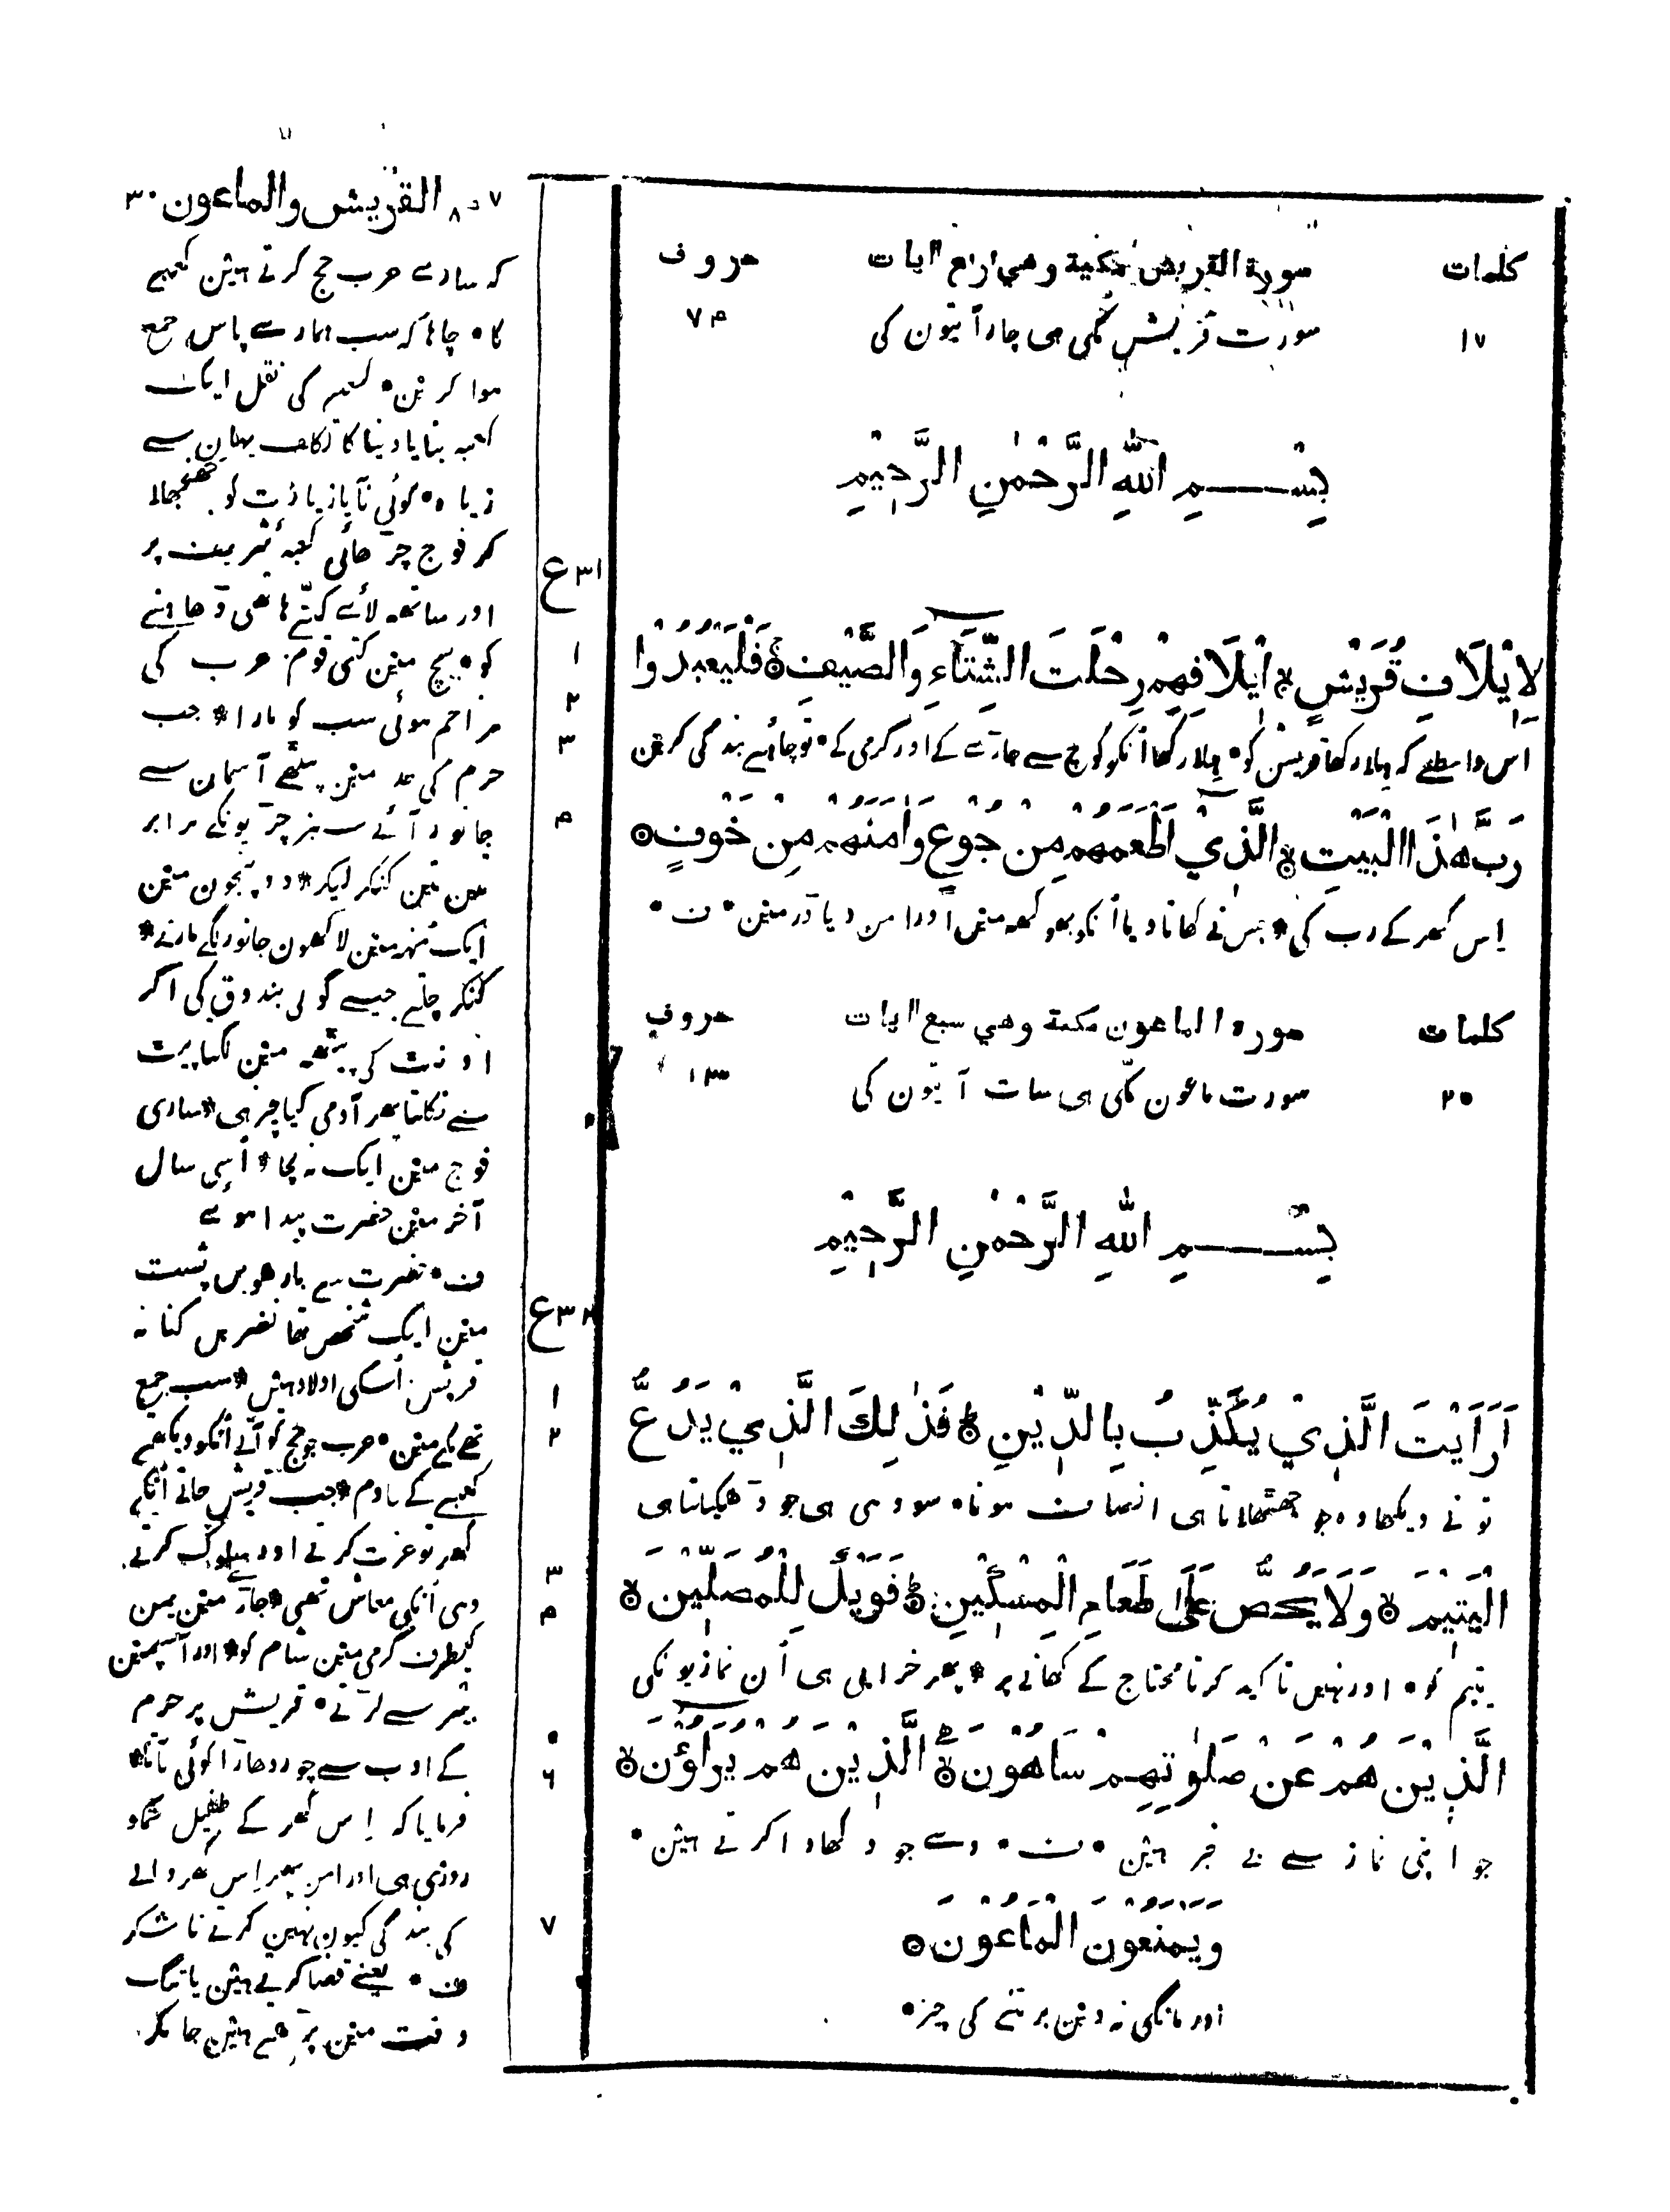 ٨٠٧ القریش والماعون ٣٠
کلمات سورة القریش مکیة وهی اربع ایات حروف
١٧ سورت قریش مکی ہی چار آیتون کی ٧٣
بِسْمِ اللهِ الرَّحْمٰنِ الرَّحِيْمِ
ع ٣١
لِاِيْلَافِ قُرَيْشٍ ۙ اٖيْلَافِهِمْ رِحْلَتَ الشِّتَآءِ وَالصَّيْفِ ۚ فَلْيَعْبُدُوْا
١
٢
٣
اس واسطے کہ ہلا رکھا قریش کو ٠ ہلا رکھا اُنکو کوچ سے جاڑے کے اور گرمی کے ٠ تو چاہئے بندگی کرین
رَبَّ هٰذَا الْبَيْتِ ۙ الَّذِيْٓ اَطْعَمَهُمْ مِنْ جُوْعٍ وَاٰمَنَهُمْ مِنْ خَوْفٍ ۝
٤
اِس گھر کے رب کی * جس نے کھانا دیا اُنکو بھوکھہ مین اور امن دیا ڈر مین ٠ ف ٠
کلمات سورة الماعون مکیة وهی سبع ایات حروف
٢٥ سورت ماعون مکّی ہی سات آیتون کی
بِسْمِ اللهِ الرَّحْمٰنِ الرَّحِيْمِ
ع ٣٢
اَرَاَيْتَ الَّذِيْ يُكَذِّبُ بِالدِّيْنِ ۙ فَذٰلِكَ الَّذِيْ يَدُعُّ
١
٢
تو نے دیکھا وہ جو جھٹھلاتا ہی انصاف ہونا ٠ سو وہی ہی جو دھکیلتا ہی
الْيَتِيْمَ ۙ وَلَا يَحُضُّ عَلٰى طَعَامِ الْمِسْكِيْنِ ۙ فَوَيْلٌ لِلْمُصَلِّيْنَ ۙ
٣
٤
یتیم کو ٠ اور نہین تاکید کرتا محتاج کے کھانے پر * پھر خرابی ہی اُن نمازیونکی
الَّذِيْنَ هُمْ عَنْ صَلٰوتِهِمْ سَاهُوْنَ ۙ الَّذِيْنَ هُمْ يُرَآؤُنَ ۙ
٥
٦
جو اپنی نماز سے بے خبر ہین ٠ ف ٠ وے جو دکھاوا کرتے ہین ٠
وَيَمْنَعُوْنَ الْمَاعُوْنَ ۝
٧
اور مانگی نہ دین برتنے کی چیز ٠
کہ سارے عرب حج کرتے ہین کعبے
کا ٠ چاہا کہ سب ہمارے پاس جمع
ہوا کرین ٠ کعبہ کی نقل ایک
کعبہ بنایا دنیا کا تکلف یہان سے
زیادہ ٠ کوئی نآیا زیارت کو جھنجھلا
کر فوج چڑھائی کعبہ شریف پر
اور ساتھہ لائے کتّے ہاتھی ڈھاہنے
کو ٠ بیچ مین کئی قوم عرب کی
مزاحم ہوئی سب کو مارا * جب
حرم کی حد مین پیٹھے آسمان سے
جانور آئے سبز چڑیونکے برابر
تین تین کنکر لیکر * دو پنجون مین
ایک مُنہہ مین لاکھون جانور لگے مارنے *
کنکر چلتے جیسے گولی بندوق کی اگر
اونٹ کی پیٹھہ مین لگتا پیٹ
سے نکلتا پھر آدمی کیا چیز ہی * ساری
فوج مین ایک نہ بچا * اُسی سال
آخر مین حضرت پیدا ہوئے
ف ٠ حضرت سے بارھوین پشت
مین ایک شخص تھا نضر بن کنانہ
قریش اُسکی اولاد ہین * سب جمع
تھے مکے مین ٠ عرب جو حج کو آتے اُنکو دیکھتے
کعبے کے خادم * جب قریش جاتے اُنکے
گھر تو عزت کرتے اور سلوک کرتے
وہی اُنکی معاش تھی * جاڑے مین یمن
کیطرف گرمی مین شام کو * اور آپسمین
بیر سے لڑتے ٠ قریش پر حرم
کے ادب سے چور دھاڑا کوئی نآتا *
فرمایا کہ اِس گھر کے طفیل تمکو
روزی ہی اور امن پھر اِس گھر والے
کی بندگی کیون نہین کرتے ناشکر
ف ٠ یعنے قضا کرتے ہین یا تنگ
وقت مین پڑھتے ہین جانکر